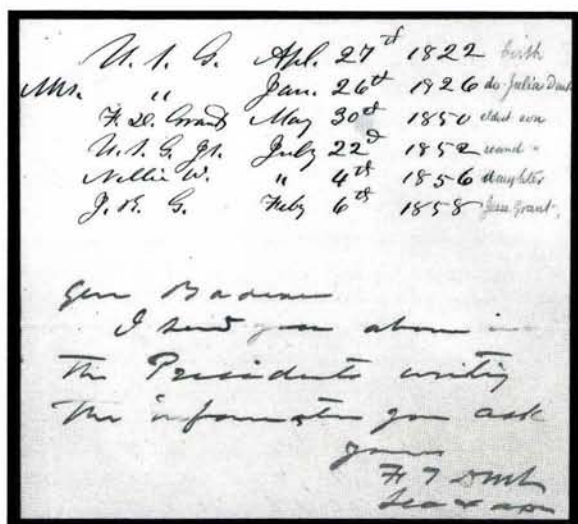 U. S. G. Apl. 27th 1822 birth
Mrs. " Jan. 26th 1826 do Julia Dent
F. D. Grant May 30th 1850 eldest son
U. S. G. Jr. July 22d 1852 second "
Nellie W. " 4th 1856 daughter
J. R. G. Feby 6th 1858 Jesse Grant.
Gen Badeau
I send you above in
the Presidents writing
the information you ask
yours
F T Dent